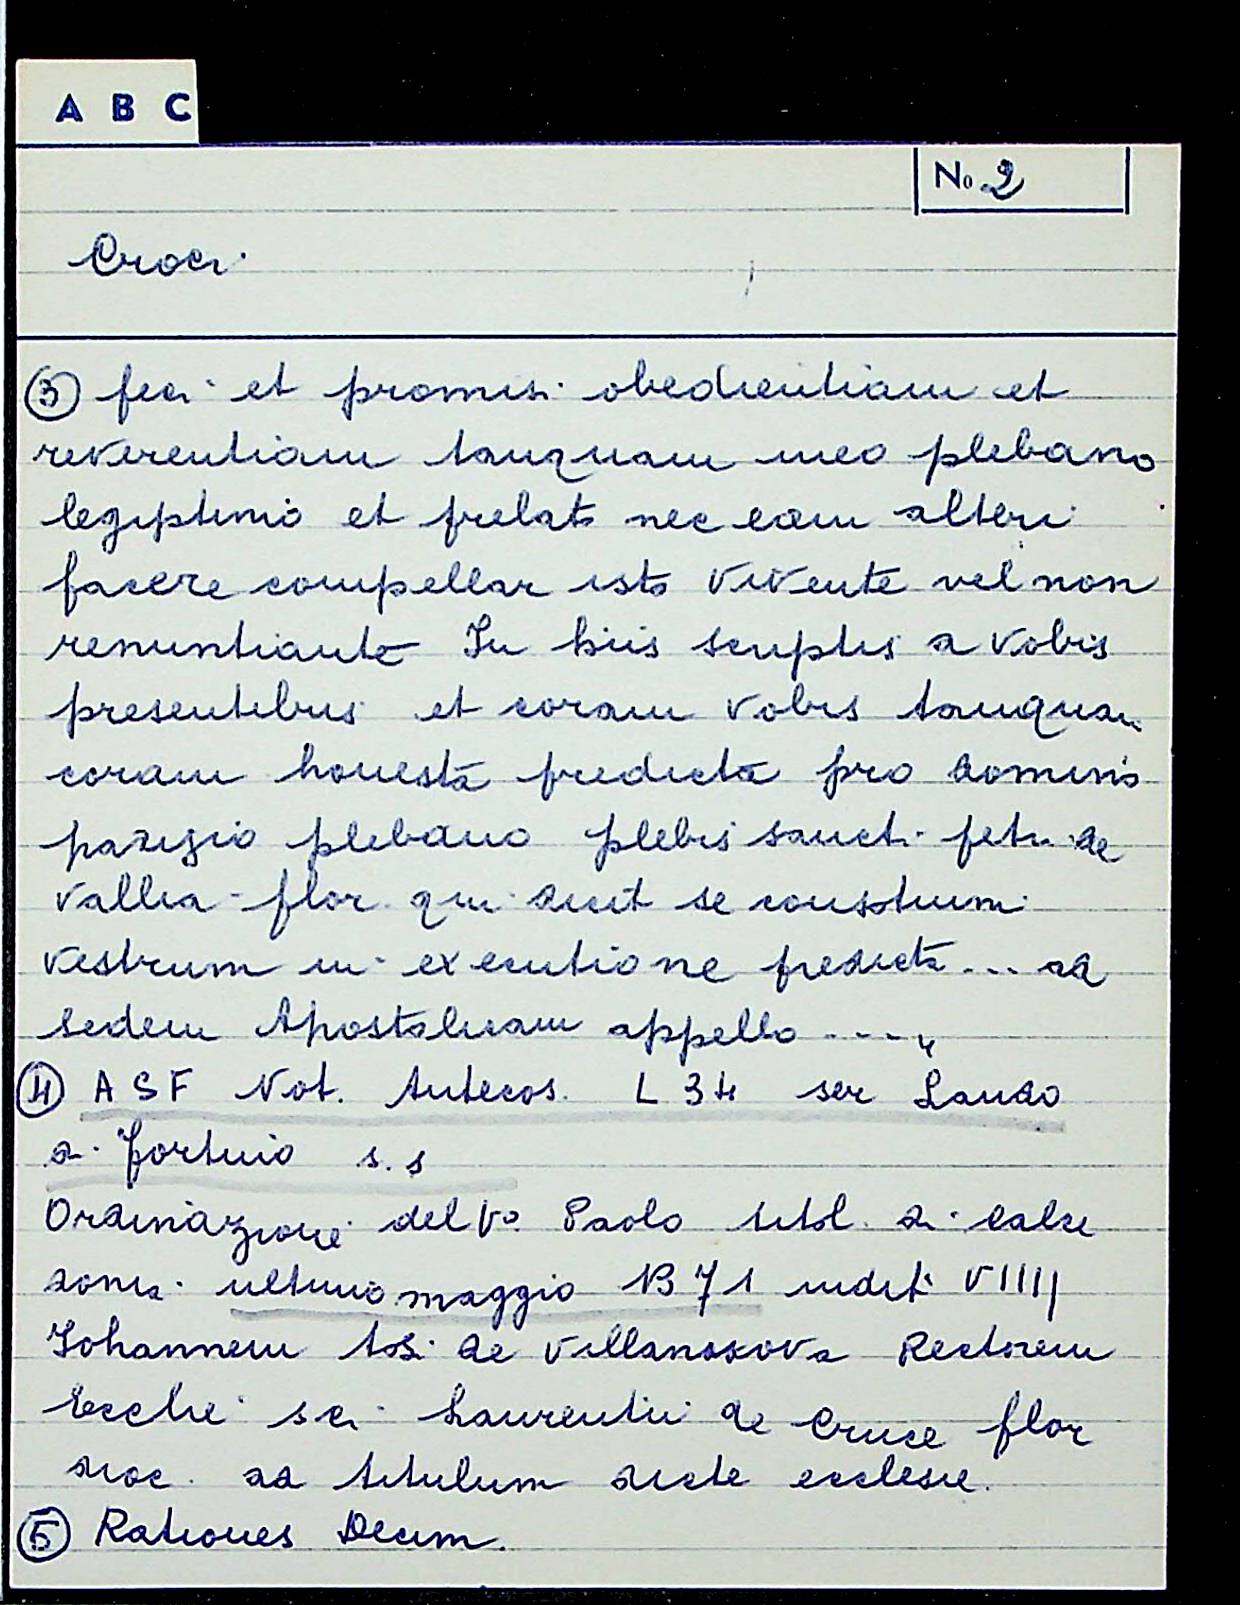 A B C
No 2
Croci
③ feci et promisi obedientiam et
reverentiam tanquam meo plebano
legiptimo et prelato nec eam alteri
facere compellar isto vivente vel non
renuntiante In hiis scriptis a vobis
presentibus et coram vobis tanquam
coram honesta predicta pro domino
plebano plebis sancti petri de
vallia flor qui dicit se
vestrum in executione predicta ... ad
sedem Apostolicam appello ...."
④ ASF Not. Antecos. L 34 ser Lando
di Fortino s.s
Ordinazione del Vo. Paolo titol. di calce
doni. ultimo maggio 1371 indit. VIIII
Johannem de Rectorem
Ecclie sci Laurentii de Cruce flor
dioc. ad titulum dicte ecclesie.
⑤ Rationes Decim.